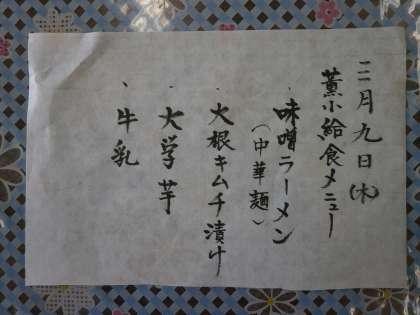 三月九日(木)
薫小給食メニュー
・味噌ラーメン
(中華麺)
・大根キムチ漬け
・大学芋
・牛乳